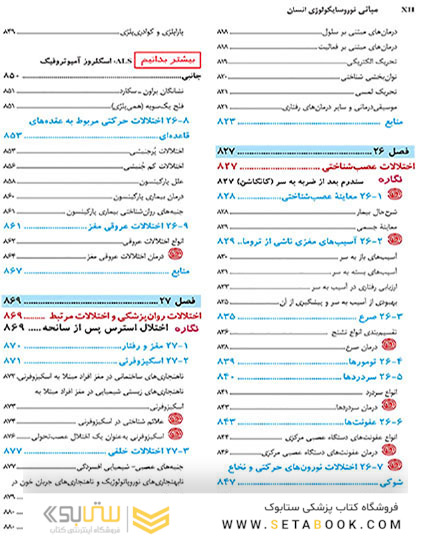 XII مبانی نوروسایکولوژی انسان
درمان‌های مبتنی بر سلول ۸۱۸
درمان‌های مبتنی بر فعالیت ۸۱۸
تحریک الکتریکی ۸۱۹
توان‌بخشی شناختی ۸۲۰
تحریک لمسی ۸۲۱
موسیقی‌درمانی و سایر درمان‌های رفتاری ۸۲۱
منابع ۸۲۳
فصل ۲۶ ۸۲۷
اختلالات عصب‌شناختی ۸۲۷
نگاره سندرم بعد از ضربه به سر (کانکاشن) ۸۲۷
۲۶-۱ معاینهٔ عصب‌شناختی ۸۲۸
شرح‌حال بیمار ۸۲۸
معاینهٔ جسمی ۸۲۹
۲۶-۲ آسیب‌های مغزی ناشی از تروما ۸۲۹
آسیب‌های باز به سر ۸۳۰
آسیب‌های بسته به سر ۸۳۱
ارزیابی رفتاری در آسیب به سر ۸۳۳
بهبودی از آسیب به سر و پیشگیری از آن ۸۳۵
۲۶-۳ صرع ۸۳۵
تقسیم‌بندی انواع تشنج ۸۳۶
درمان صرع ۸۳۸
۲۶-۴ تومورها ۸۳۹
۲۶-۵ سردردها ۸۴۰
انواع سردرد ۸۴۱
درمان سردردها ۸۴۳
۲۶-۶ عفونت‌ها ۸۴۳
انواع عفونت‌های دستگاه عصبی مرکزی ۸۴۴
درمان عفونت‌های دستگاه عصبی مرکزی ۸۴۶
۲۶-۷ اختلالات نورون‌های حرکتی و نخاع
شوکی ۸۴۷
پاراپلژی و کوادری‌پلژی ۸۴۹
بیشتر بدانیم ALS: اسکلروز آمیوتروفیک
جانبی ۸۵۰
نشانگان براون ـ سکارد ۸۵۱
فلج یک‌سویه (همی‌پلژی) ۸۵۱
۲۶-۸ اختلالات حرکتی مربوط به عقده‌های
قاعده‌ای ۸۵۳
اختلالات پُرجنبشی ۸۵۳
اختلالات کم جُنبشی ۸۵۶
علل پارکینسون ۸۵۸
درمان بیماری پارکینسون ۸۶۰
جنبه‌های روان‌شناختی بیماری پارکینسون ۸۶۱
۲۶-۹ اختلالات عروقی مغز ۸۶۱
انواع اختلالات عروقی ۸۶۲
درمان اختلالات عروقی مغز ۸۶۴
منابع ۸۶۷
فصل ۲۷ ۸۶۹
اختلالات روان‌پزشکی و اختلالات مرتبط ۸۶۹
نگاره اختلال استرس پس از سانحه ۸۶۹
۲۷-۱ مغز و رفتار ۸۷۰
۲۷-۲ اسکیزوفرنی ۸۷۱
ناهنجاری‌های ساختمانی در مغز افراد مبتلا به اسکیزوفرنی ۸۷۲
ناهنجاری‌های زیستی شیمیایی در مغز افراد مبتلا به
اسکیزوفرنی ۸۷۳
علائم شناختی در اسکیزوفرنی ۸۷۴
اسکیزوفرنی به‌عنوان یک اختلال عصب‌تحولی ۸۷۶
۲۷-۳ اختلالات خلقی ۸۷۷
جنبه‌های عصبی-شیمیایی افسردگی ۸۷۷
نابهنجاری‌های نوروپاتولوژیک و ناهنجاری‌های جریان خون در
۸۷۹
۸۸۰
۸۸۰
ستابوک
فروشگاه اینترنتی کتاب
فروشگاه کتاب پزشکی ستابوک
WWW.SETABOOK.COM